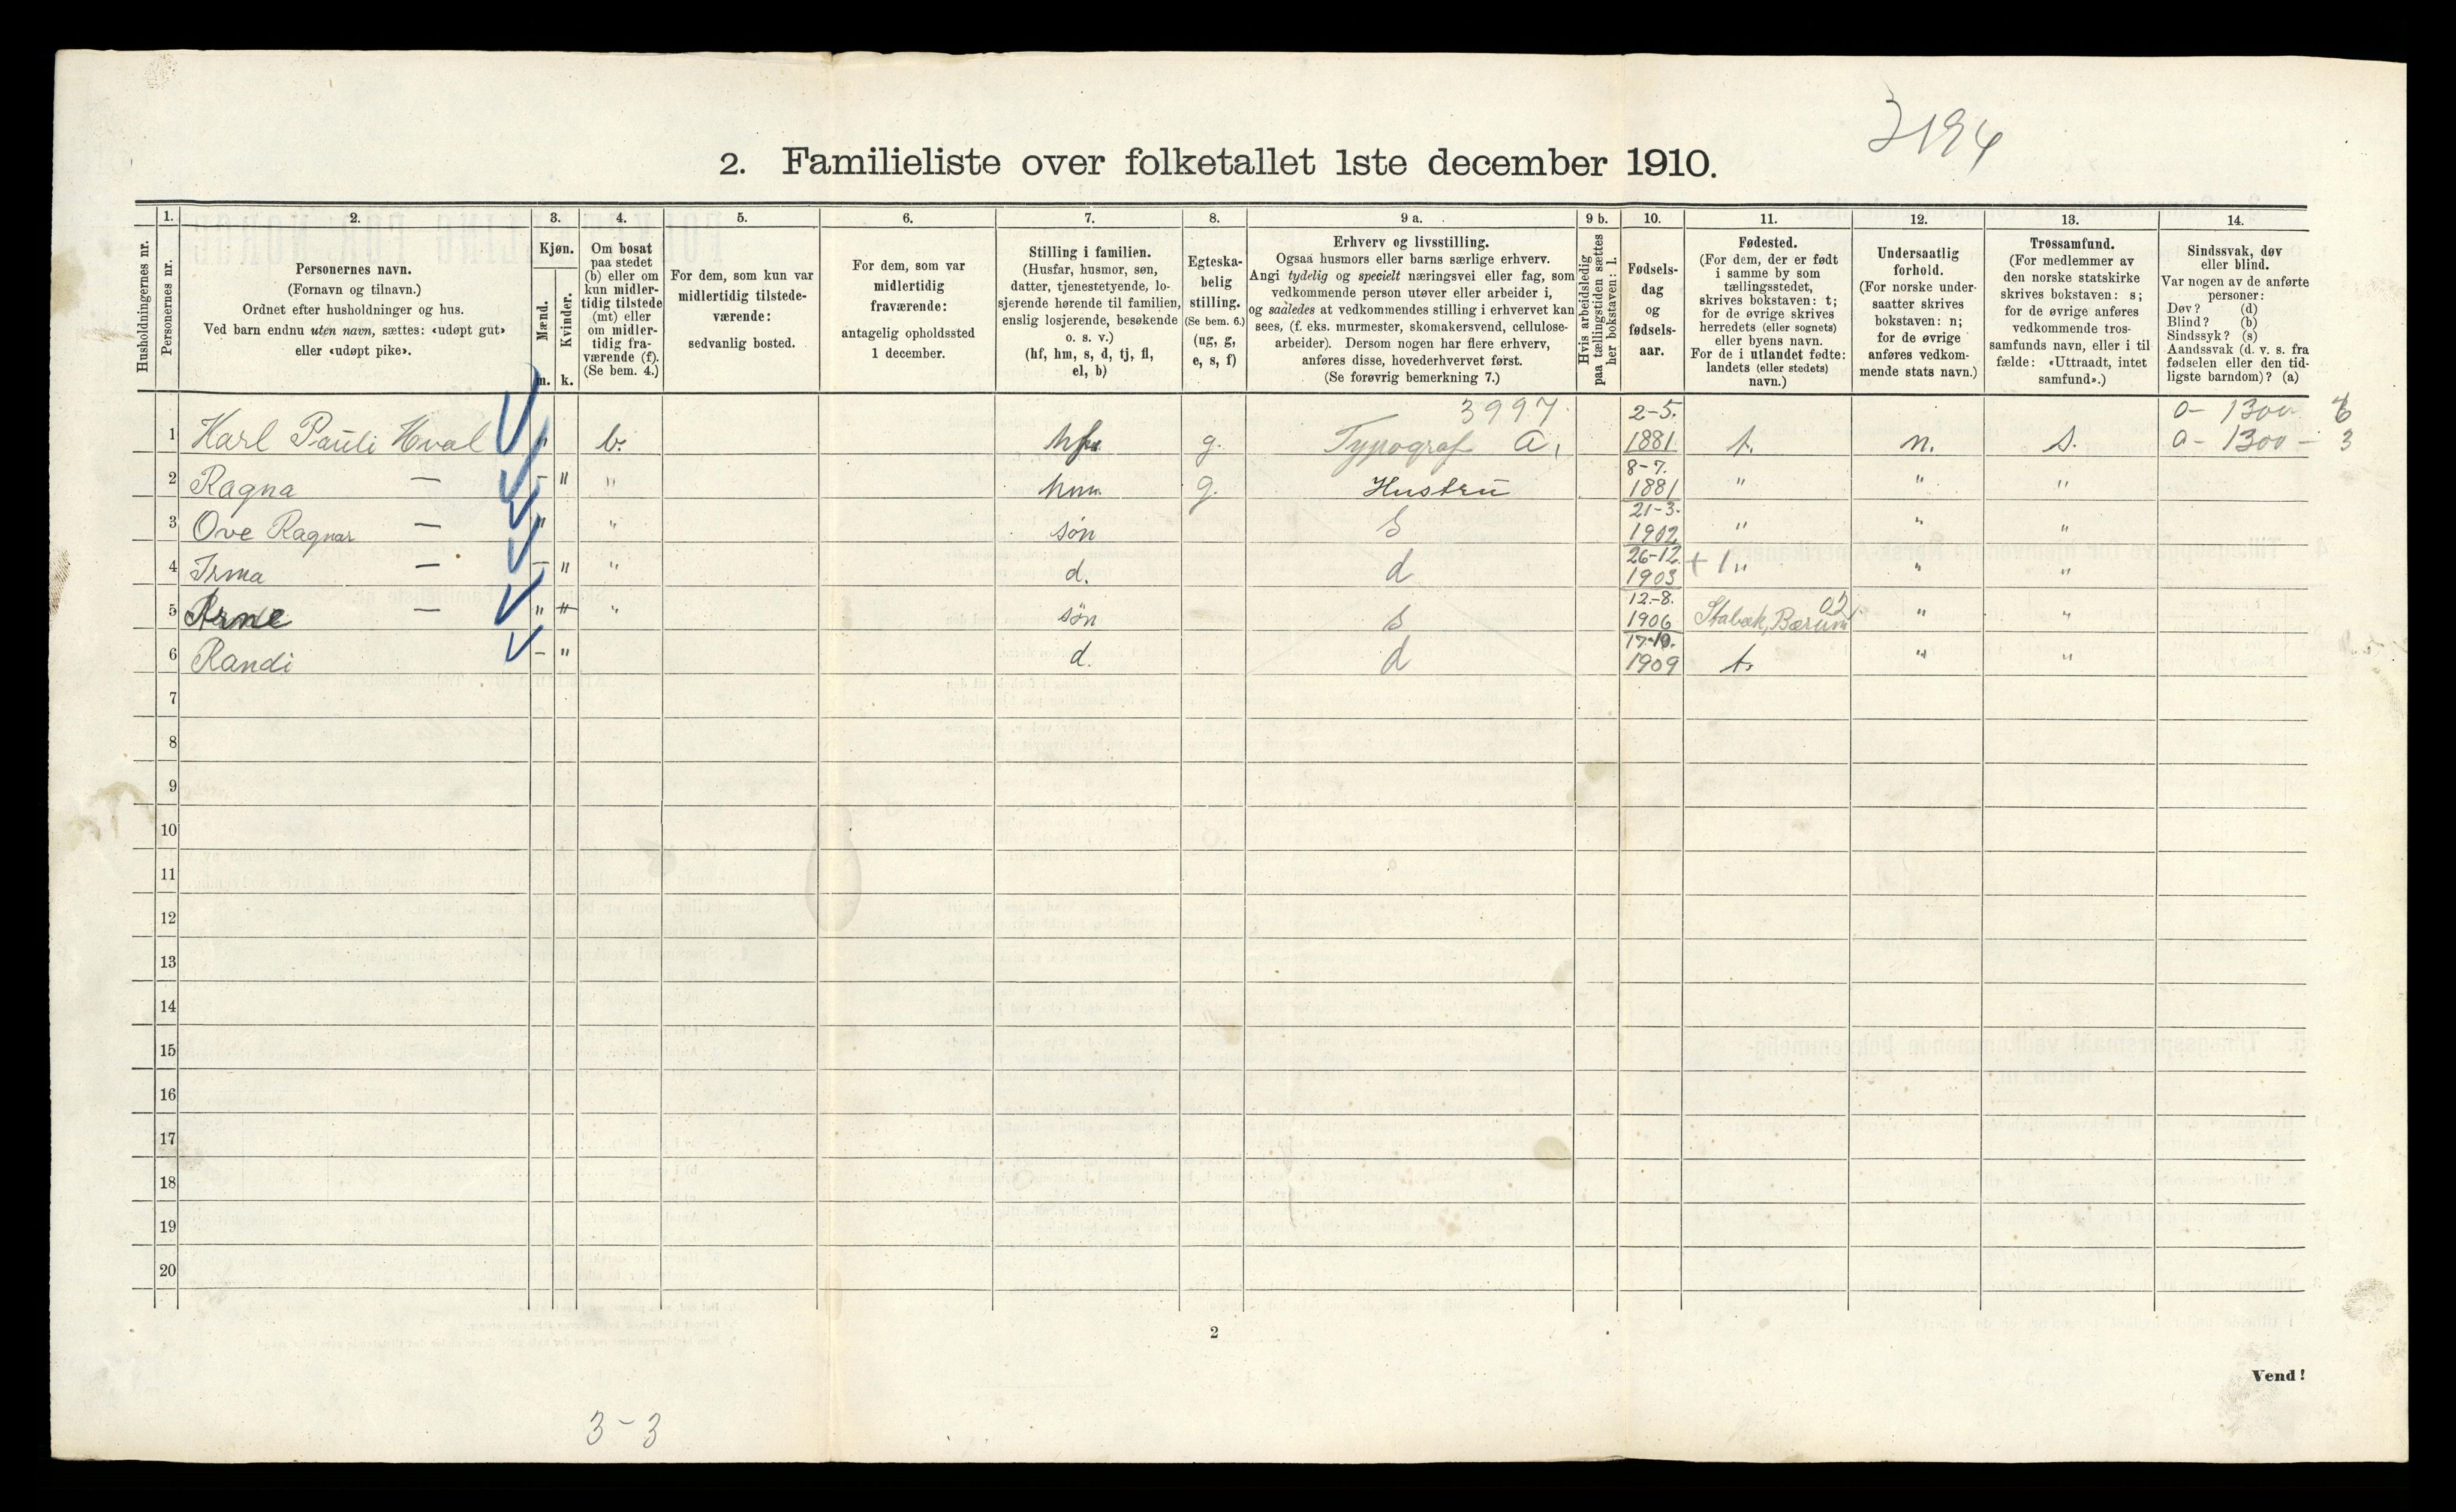 3194
2. Familieliste over folketallet 1ste december 1910.
Husholdningernes nr.
1.
Personernes nr.
2.
Personernes navn.
(Fornavn og tilnavn.)
Ordnet efter husholdninger og hus.
Ved barn endnu uten navn, sættes: «udøpt gut»
eller «udøpt pike».
3.
Kjøn.
Mænd.
Kvinder.
m. k.
4.
Om bosat
paa stedet
(b) eller om
kun midler-
tidig tilstede
(mt) eller
om midler-
tidig fra-
værende (f).
(Se bem. 4.)
5.
For dem, som kun var
midlertidig tilstede-
værende:
sedvanlig bosted.
6.
For dem, som var
midlertidig
fraværende:
antagelig opholdssted
1 december.
7.
Stilling i familien.
(Husfar, husmor, søn,
datter, tjenestetyende, lo-
sjerende hørende til familien,
enslig losjerende, besøkende
o. s. v.)
(hf, hm, s, d, tj, fl,
el, b)
8.
Egteska-
belig
stilling.
(Se bem. 6.)
(ug, g,
e, s, f)
9 a.
Erhverv og livsstilling.
Ogsaa husmors eller barns særlige erhverv.
Angi tydelig og specielt næringsvei eller fag, som
vedkommende person utøver eller arbeider i,
og saaledes at vedkommendes stilling i erhvervet kan
sees, (f. eks. murmester, skomakersvend, cellulose-
arbeider). Dersom nogen har flere erhverv,
anføres disse, hovederhvervet først.
(Se forøvrig bemerkning 7.)
9 b.
Hvis arbeidsledig
paa tællingstiden sættes
her bokstaven: l.
10.
Fødsels-
dag
og
fødsels-
aar.
11.
Fødested.
(For dem, der er født
i samme by som
tællingsstedet,
skrives bokstaven: t;
for de øvrige skrives
herredets (eller sognets)
eller byens navn.
For de i utlandet fødte:
landets (eller stedets)
navn.)
12.
Undersaatlig
forhold.
(For norske under-
saatter skrives
bokstaven: n;
for de øvrige
anføres vedkom-
mende stats navn.)
13.
Trossamfund.
(For medlemmer av
den norske statskirke
skrives bokstaven: s;
for de øvrige anføres
vedkommende tros-
samfunds navn, eller i til-
fælde: «Uttraadt, intet
samfund».)
14.
Sindssvak, døv
eller blind.
Var nogen av de anførte
personer:
Døv? (d)
Blind? (b)
Sindssyk? (s)
Aandssvak (d. v. s. fra
fødselen eller den tid-
ligste barndom)? (a)
3997 2-5. 0- 1300- 6
1 Karl Pauli Hval " b. hf. g. Typograf a, 1881 t. n. s. 0- 1300 - 3
8-7.
2 Ragna — - " " hm g. Hustru 1881 " " "
21-3.
3 Ove Ragnar — " " søn s 1902 " " "
26-12.
4 Irma — - " " d. d 1903 + 1 " " "
12.-8. 02
5 Arne — " " " søn s 1906 Stabæk, Bærum " "
17-10.
6 Randi - " d. d 1909 t. " "
7
8
9
10
11
12
13
14
15
16
17
18
19
20
2
Vend!
3-3